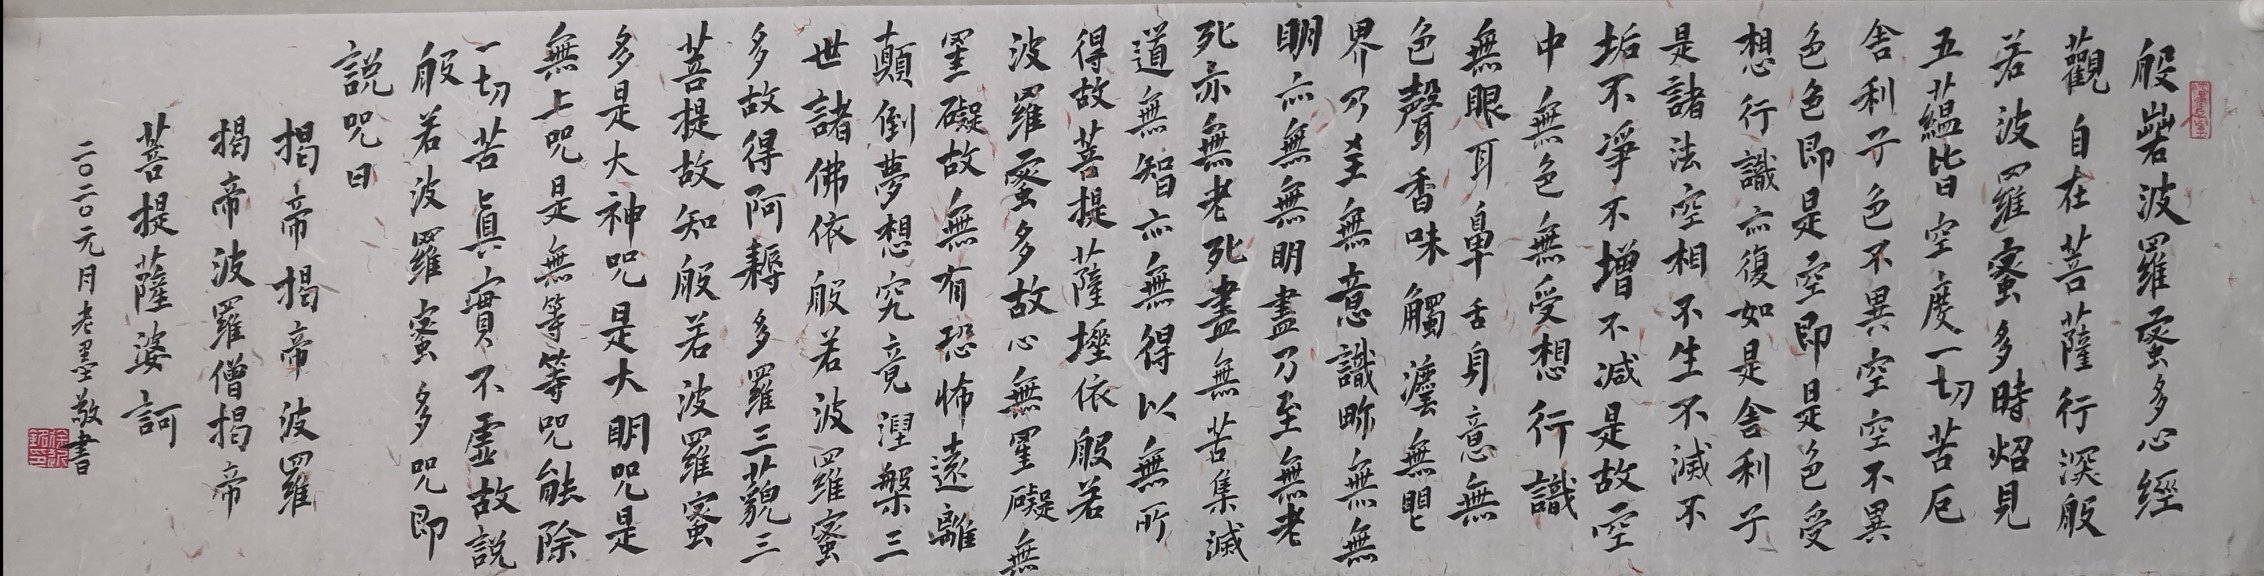 般若波羅蜜多心經
觀自在菩薩行深般
若波羅蜜多時炤見
五蘊皆空度一切苦厄
舍利子色不異空空不異
色色即是空空即是色受
想行識亦復如是舍利子
是諸法空相不生不滅不
垢不淨不增不減是故空
中無色無受想行識
無眼耳鼻舌身意無
色聲香味觸灋無眼
界乃至無意識眎無無
明亦無無明盡乃至無老
死亦無老死盡無苦集滅
道無智亦無得以無所
得故菩提薩埵依般若
波羅蜜多故心無罣礙無
罣礙故無有恐怖遠離
顛倒夢想究竟涅槃三
世諸佛依般若波羅蜜
多故得阿耨多羅三藐三
菩提故知般若波羅蜜
多是大神咒是大明咒是
無上咒是無等等咒能除
一切苦真實不虛故説
般若波羅蜜多咒即
説咒曰
揭帝揭帝波羅
揭帝波羅僧揭帝
菩提薩婆訶
二〇二〇元月老墨敬書